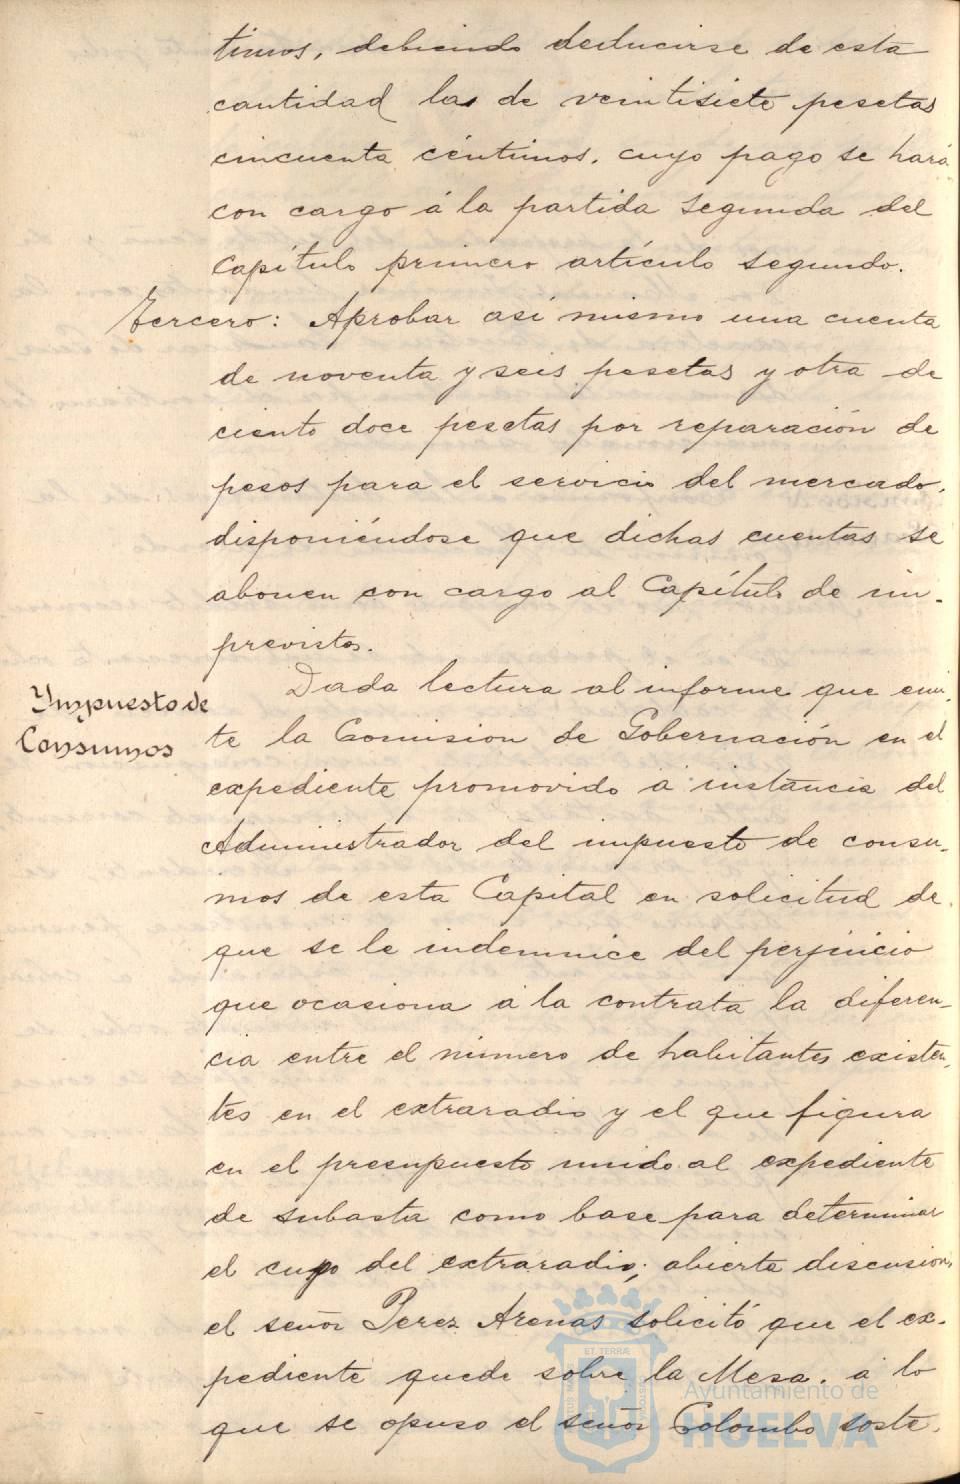 timos, debiendo deducirse de esta
cantidad las de veintisiete pesetas
cincuenta céntimos, cuyo pago se hará
con cargo á la partida segunda del
Capítulo primero artículo segundo.
Tercero: Aprobar así mismo una cuenta
de noventa y seis pesetas y otra de
ciento doce pesetas por reparación de
pesos para el servicio del mercado,
disponiéndose que dichas cuentas se
abonen con cargo al Capítulo de im-
previstos.
Ympuesto de
Consumos
Dada lectura al informe que emi-
te la Comision de Gobernación en el
expediente promovido á instancia del
Administrador del impuesto de consu-
mos de esta Capital en solicitud de
que se le indemnice del perjuicio
que ocasiona á la contrata la diferen-
cia entre el número de habitantes existen-
tes en el extraradio y el que figura
en el presupuesto unido al expediente
de subasta como base para determinar
el cupo del extraradio; abierta discusion,
el señor Perez Arenas solicitó que el ex-
pediente quede sobre la Mesa, á lo
que se opuso el señor Colombo soste-
ET TERRÆ
Ayuntamiento de
HUELVA